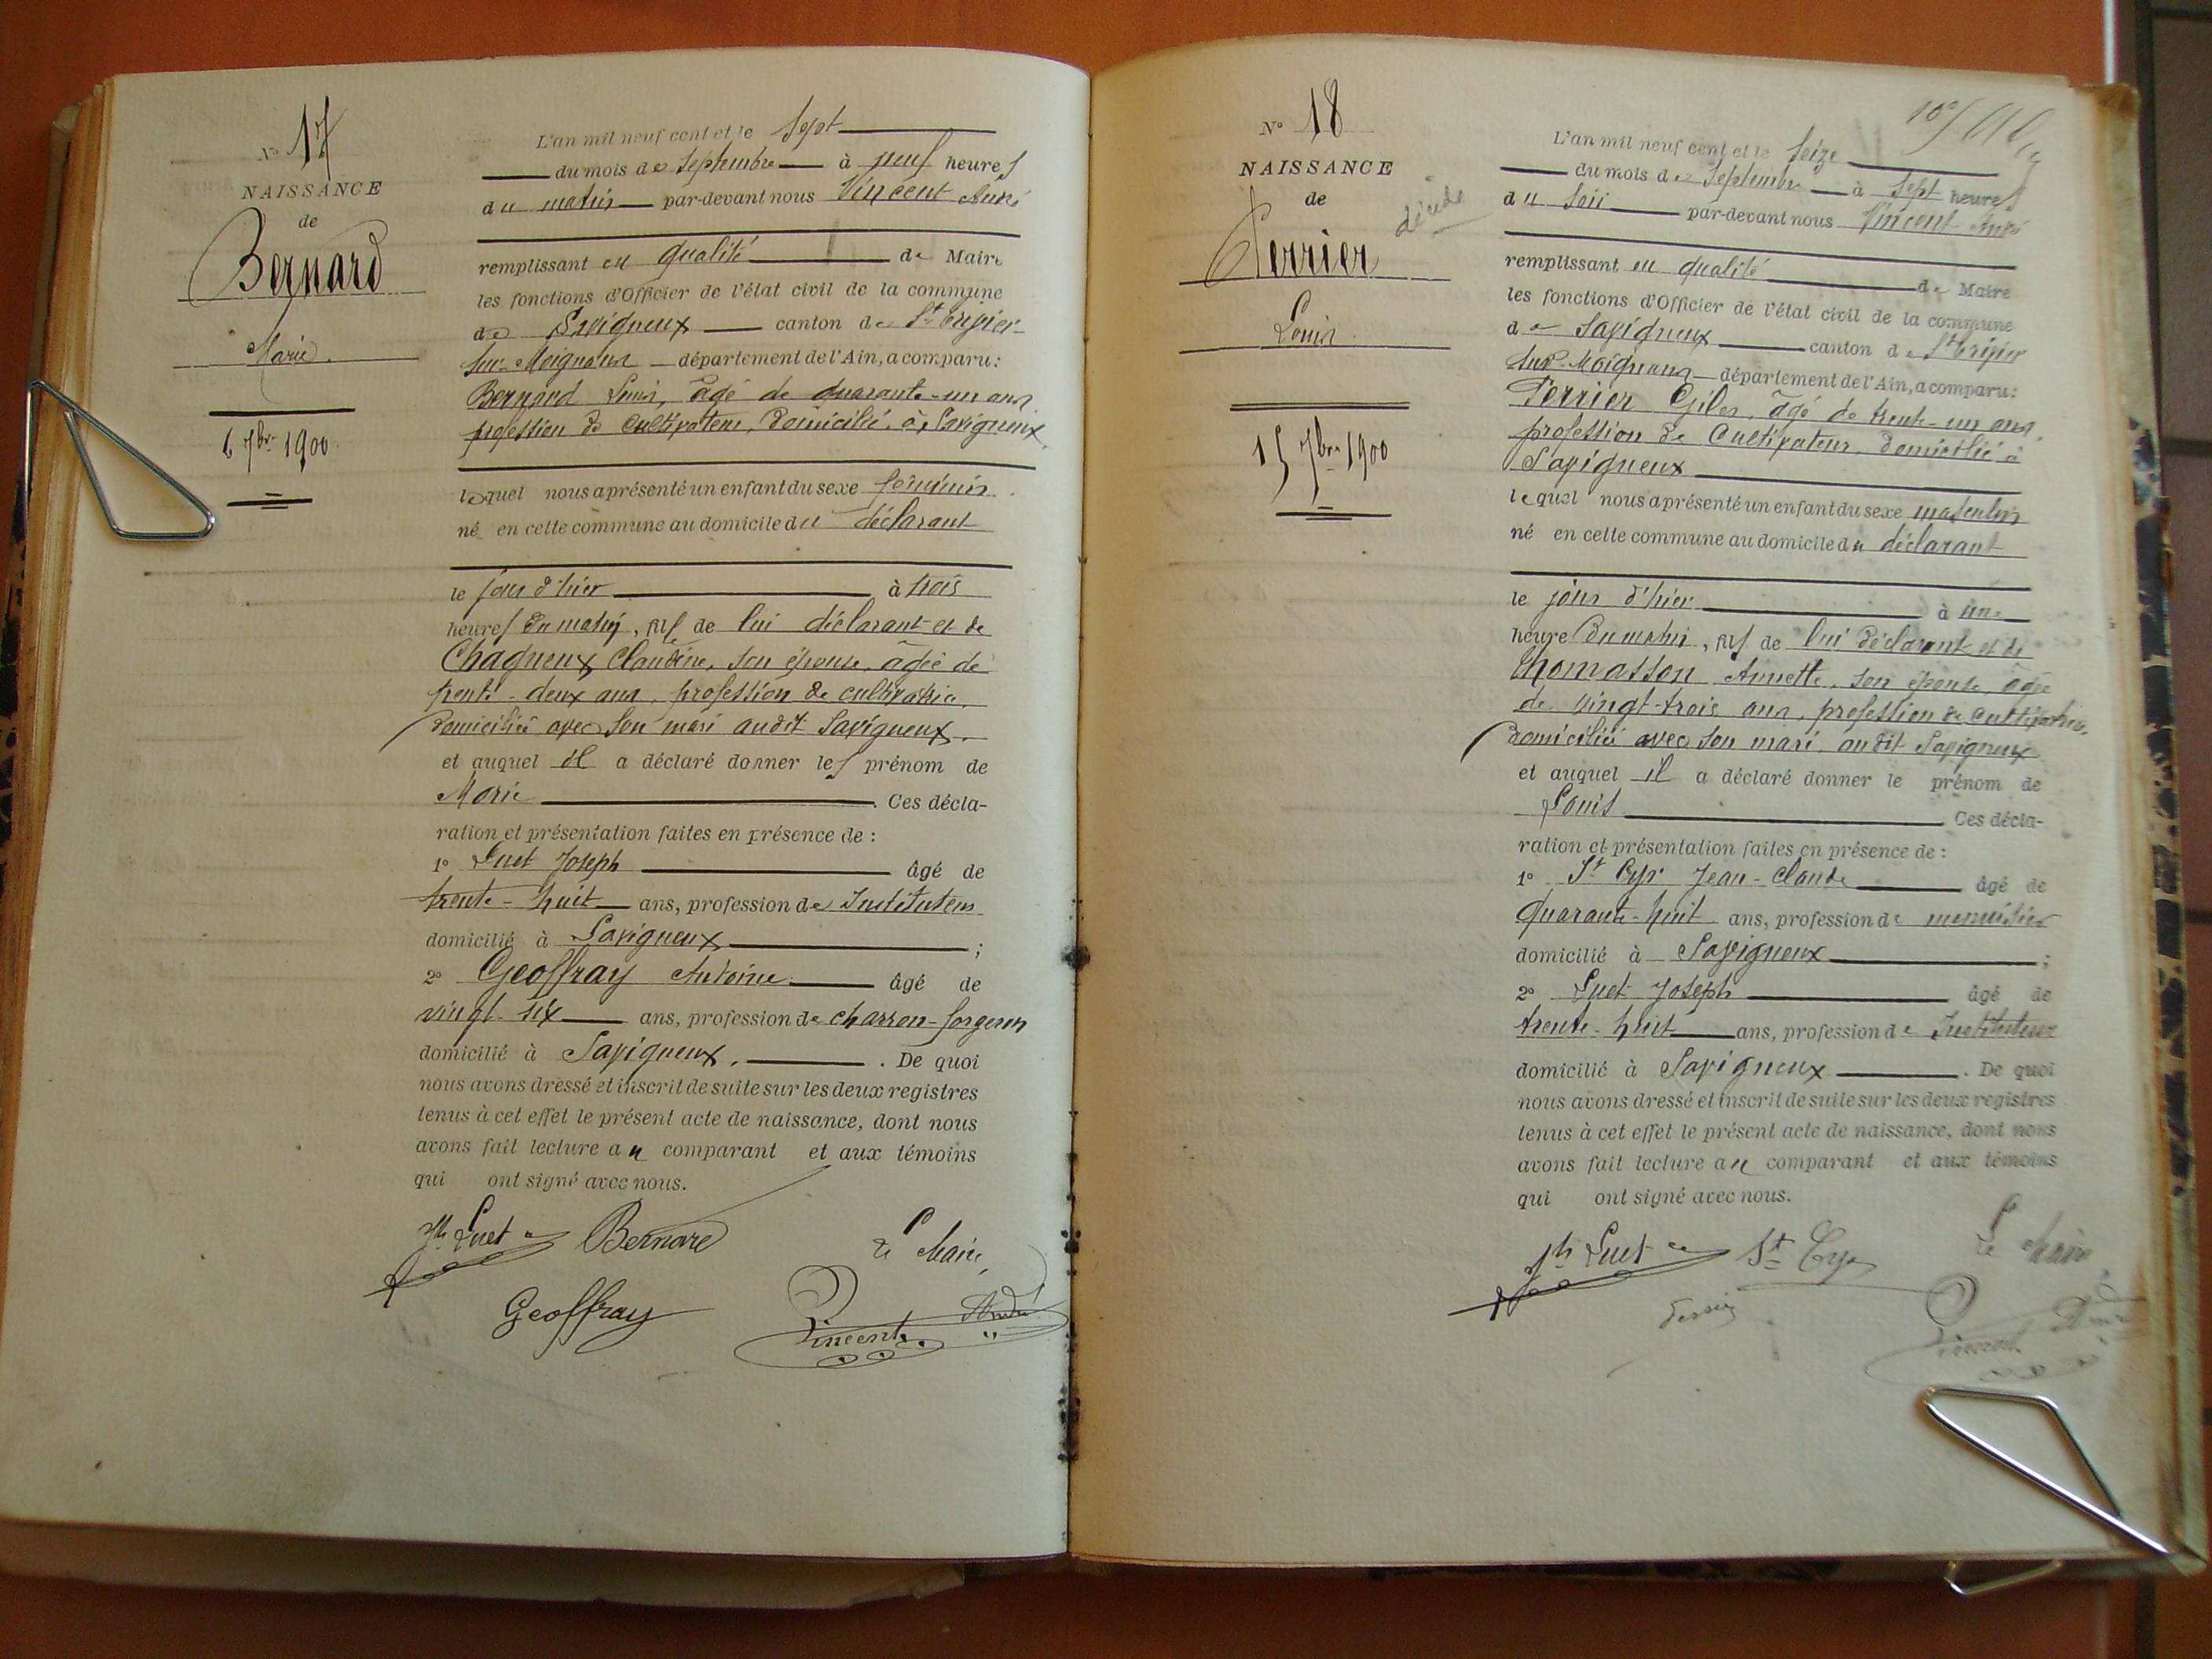 Nº 17
NAISSANCE
de
Bernard
Marie
6 7bre 1900
L'an mil neuf cent et le Sept
du mois de Septembre à neuf heures
du matin par-devant nous Vincent André
remplissant en qualité de Maire
les fonctions d'Officier de l'état civil de la commune
de Savigneux canton de St Trivier-
sur-Moignans département de l'Ain, a comparu:
Bernard Louis, âgé de quarante-un ans,
profession de Cultivateur, domicilié à Savigneux,
lequel nous a présenté un enfant du sexe féminin
né en cette commune au domicile du déclarant
le jour d'hier à trois
heures du matin, fils de lui déclarant et de
Chagneux Claudine, son épouse, âgée de
trente-deux ans, profession de cultivatrice,
domiciliée avec son mari audit Savigneux.
et auquel il a déclaré donner les prénom de
Marie . Ces décla-
ration et présentation faites en présence de :
1º Luet Joseph âgé de
trente-huit ans, profession de Instituteur
domicilié à Savigneux ;
2º Geoffray Antoine âgé de
vingt-six ans, profession de charron-forgeron
domicilié à Savigneux. . De quoi
nous avons dressé et inscrit de suite sur les deux registres
tenus à cet effet le présent acte de naissance, dont nous
avons fait lecture au comparant et aux témoins
qui ont signé avec nous.
Jh Luet Bernard Le Maire,
Geoffray Vincent André
Nº 18
NAISSANCE
de
Perrier
décédé
Louis
15 7bre 1900
L'an mil neuf cent et le Seize
du mois de Septembre à Sept heures
du soir par-devant nous Vincent André
remplissant en qualité de Maire
les fonctions d'Officier de l'état civil de la commune
de Savigneux canton de St Trivier
sur-Moignans département de l'Ain, a comparu:
Perrier Giles, âgé de trente-un ans,
profession de Cultivateur, domicilié à
Savigneux
lequel nous a présenté un enfant du sexe masculin
né en cette commune au domicile du déclarant
le jour d'hier à une
heure du matin, fils de lui déclarant et de
Thomasson Annette, son épouse âgée
de vingt-trois ans, profession de cultivatrice,
domiciliée avec son mari audit Savigneux
et auquel il a déclaré donner le prénom de
Louis . Ces décla-
ration et présentation faites en présence de :
1º St Cyr Jean-Claude âgé de
quarante-huit ans, profession de menuisier
domicilié à Savigneux ;
2º Luet Joseph âgé de
trente-huit ans, profession de Instituteur
domicilié à Savigneux . De quoi
nous avons dressé et inscrit de suite sur les deux registres
tenus à cet effet le présent acte de naissance, dont nous
avons fait lecture au comparant et aux témoins
qui ont signé avec nous.
Jh Luet St Cyr Le Maire
Vincent André